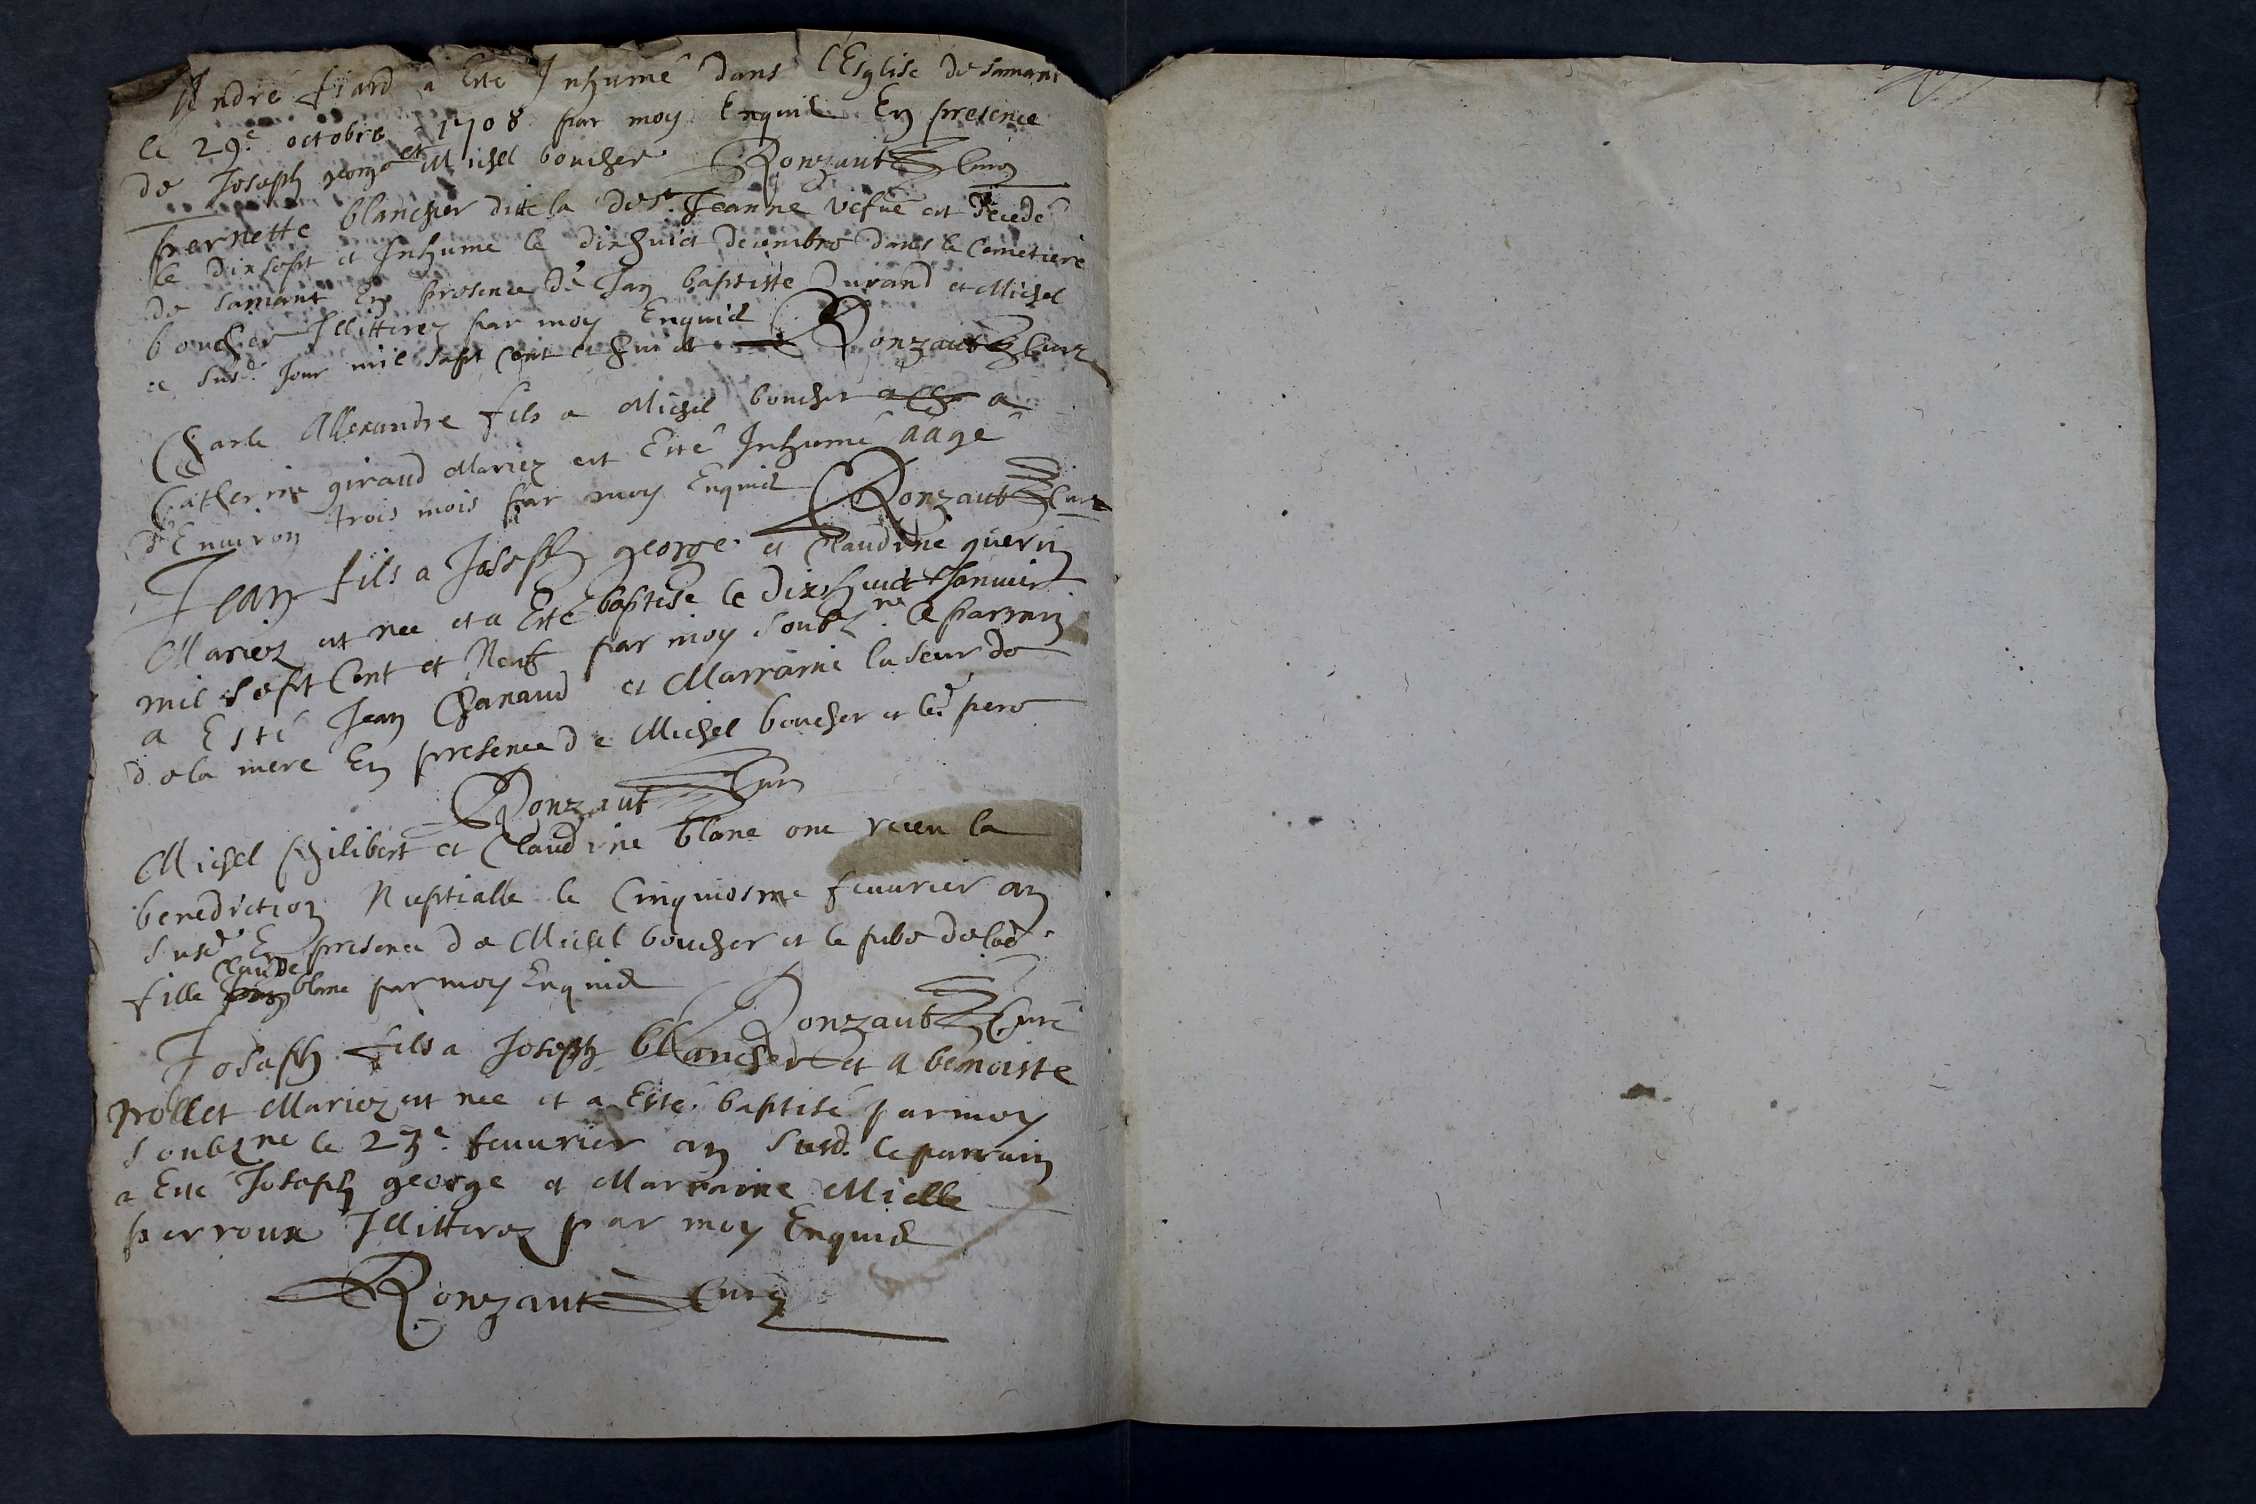 André fiard a Esté Inhumé dans l'Esglise de samans
le 29e. octobre 1708 par moy Enquid En presence
de Joseph george et Michel boucher Ronzaut Curé
pernette blancher ditte la de st. Jeanne vefue est decedé
le dix sept et Inhume le dixhuict decembre dans le Cemetiere
de samant En presence de Jan baptiste Durand et Michel
boucher Illitterez par moy Enquid
ce susd. Jour mil sept Cent et huict Ronzaut Curé
Charle Allexandre fils a Michel boucher a
Catherine giraud Mariez est Esté Inhumé aagé
d'Enuiron trois mois par moy Enquid Ronzaut Curé
Jean fils a Joseph george et Claudine guerin
Mariez est nee et a Esté baptisé le dixhuict Januier
mil sept Cent et Neuf par moy soubzne. le parrain
a Esté Jean Chanaud et Marraine la seur de
de la mere En presence de Michel boucher et led. pere
Ronzaut Curé
Michel philibert et Claudine blanc ont receu la
benediction Nuptialle le Cinquiesme feuurier an
susd. En presence de Michel boucher et le de lad.
fille Claude blanc par moy Enquid
Ronzaut Curé
Joseph fils a Joseph blancher et a benoiste
trollet Mariez est nee et a Esté baptisé par moy
soubzne le 23e. feuurier an susd. le parrain
a Esté Joseph george et Marraine Mielle
perroux Illitterez par moy Enquid
Ronzaut Curé